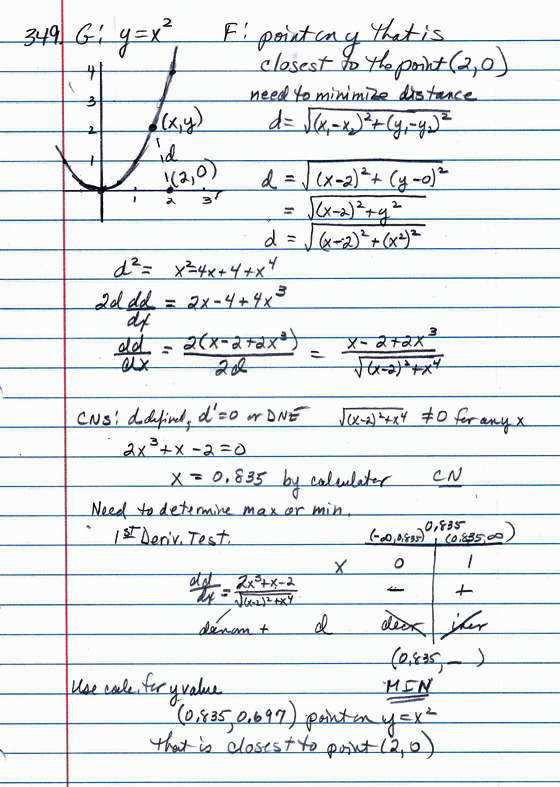 349. G: y=x² F: point on y that is
closest to the point (2,0)
need to minimize distance
d = √((x₁-x₂)²+(y₁-y₂)²)
4
3
2 (x,y)
1 d
(2,0)
1 2 3
d = √((x-2)²+(y-0)²)
= √((x-2)²+y²)
d = √((x-2)²+(x²)²)
d² = x²-4x+4+x⁴
2d dd/dx = 2x-4+4x³
dd/dx = 2(x-2+2x³)/2d = (x-2+2x³)/√((x-2)²+x⁴)
CNs: d defined, d'=0 or DNE √((x-2)²+x⁴) ≠0 for any x
2x³+x-2=0
x = 0.835 by calculator CN
Need to determine max or min.
1ST Deriv. Test. (-∞,0.835) 0.835 (0.835,∞)
x 0 1
dd/dx = (2x³+x-2)/√((x-2)²+x⁴) - +
denom + d decr incr
(0.835, _ )
MIN
Use calc. for y value
(0.835, 0.697) point on y=x²
that is closest to point (2,0)